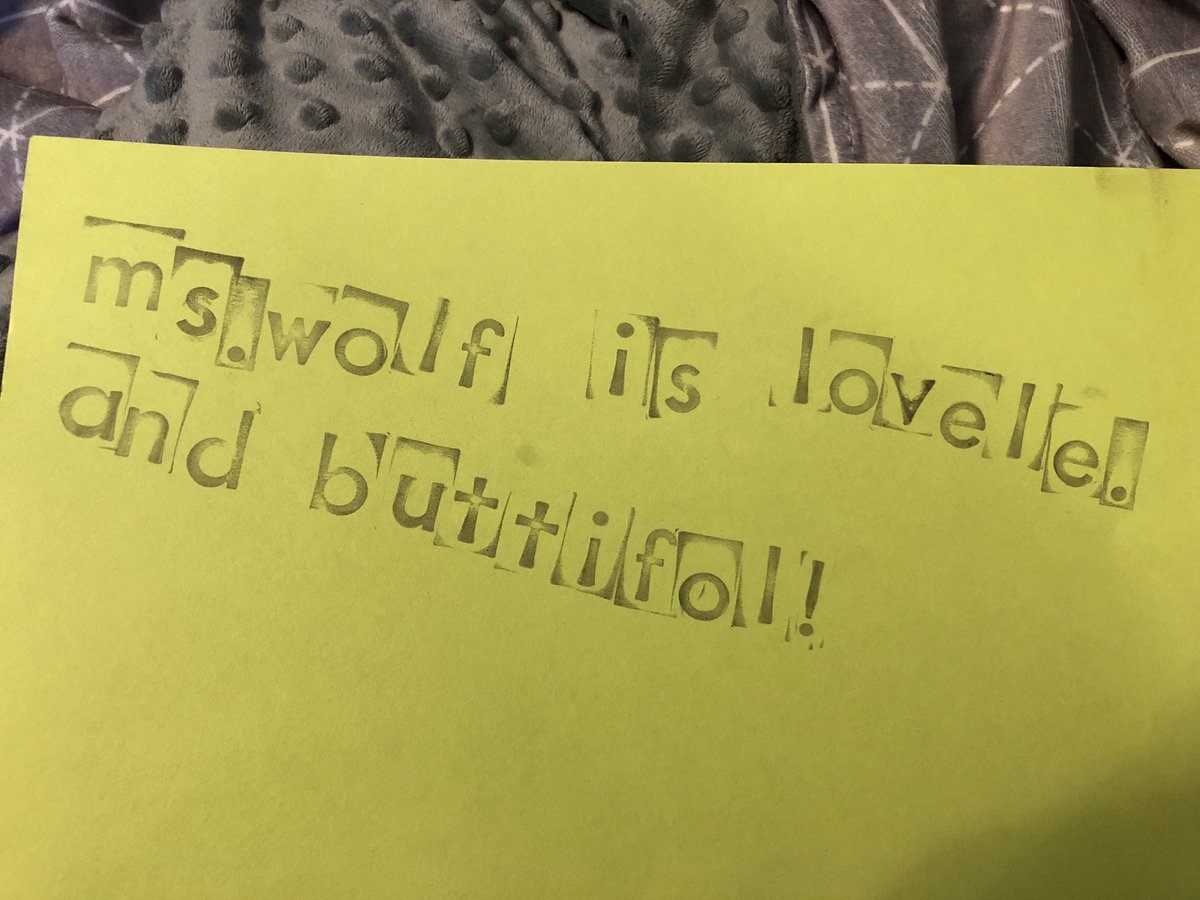 ms.wolf is lovele.
and buttifol!